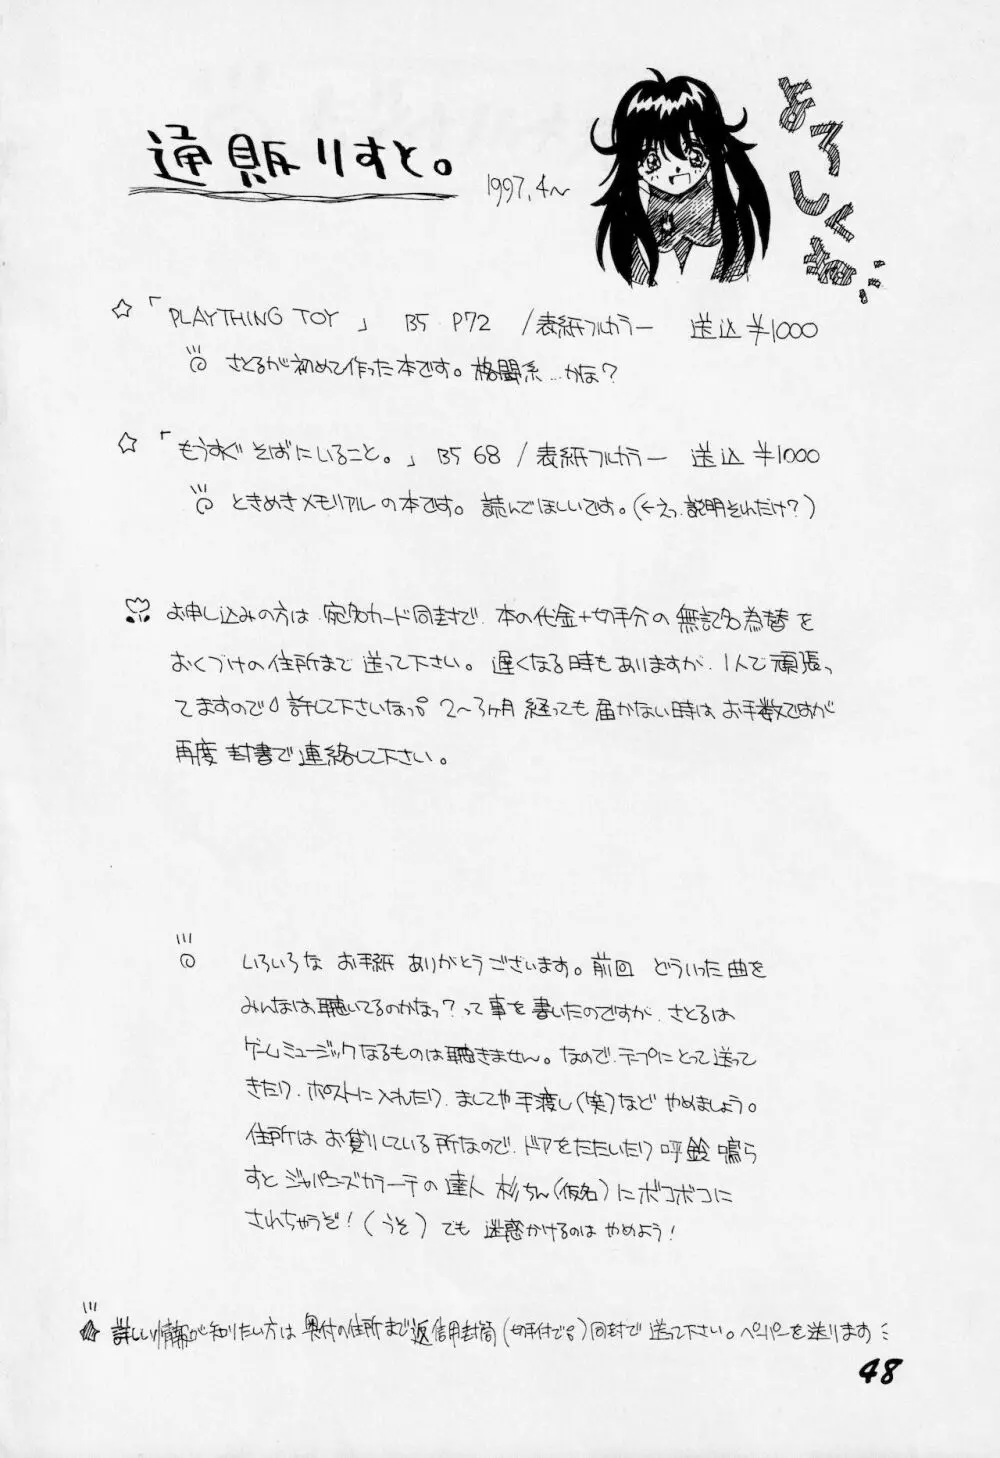 通販りすと。
1997,4〜
よろしくね
☆「PLAYTHING TOY」 B5 P72 /表紙フルカラー 送込¥1000
さとるが初めて作った本です。格闘系…かな?
☆「もうすぐそばにいること。」B5 68 /表紙フルカラー 送込¥1000
ときめきメモリアルの本です。読んでほしいです。(←えっ、説明それだけ?)
お申し込みの方は、宛名カード同封で、本の代金+切手分の無記名為替を
おくづけの住所まで送って下さい。遅くなる時もありますが、1人で頑張っ
てますので許して下さいなっ。2〜3ヶ月経っても届かない時は、お手数ですが
再度封書で連絡して下さい。
いろいろなお手紙ありがとうございます。前回どういった曲を
みんなは聴いてるのかなっ?って事を書いたのですが、さとるは
ゲームミュージックなるものは聴きません。なので、テープにとって送って
きたり、ポストに入れたり、ましてや手渡し(笑)などやめましょう。
住所はお貸りしている所なので、ドアをたたいたり呼鈴鳴ら
すとジャパニーズカラーテの達人杉ちん(仮名)にボコボコに
されちゃうぞ!(うそ)でも迷惑かけるのはやめよう!
詳しい情報が知りたい方は奥付の住所まで返信用封筒(切手付でね)同封で送って下さい。ペーパーを送ります
48